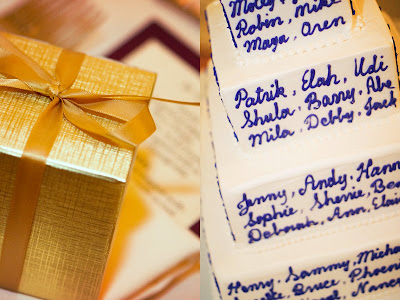 Robin, Mike
Maya, Oren
Patrik, Elah, Udi
Shula, Barry, Abe
Mila, Debby, Jack
Jenny, Andy, Hann
Sophie, Sherrie, Be
Deborah, Ann, Elai
Henry, Sammy, Micha
Bruce, Phoeni